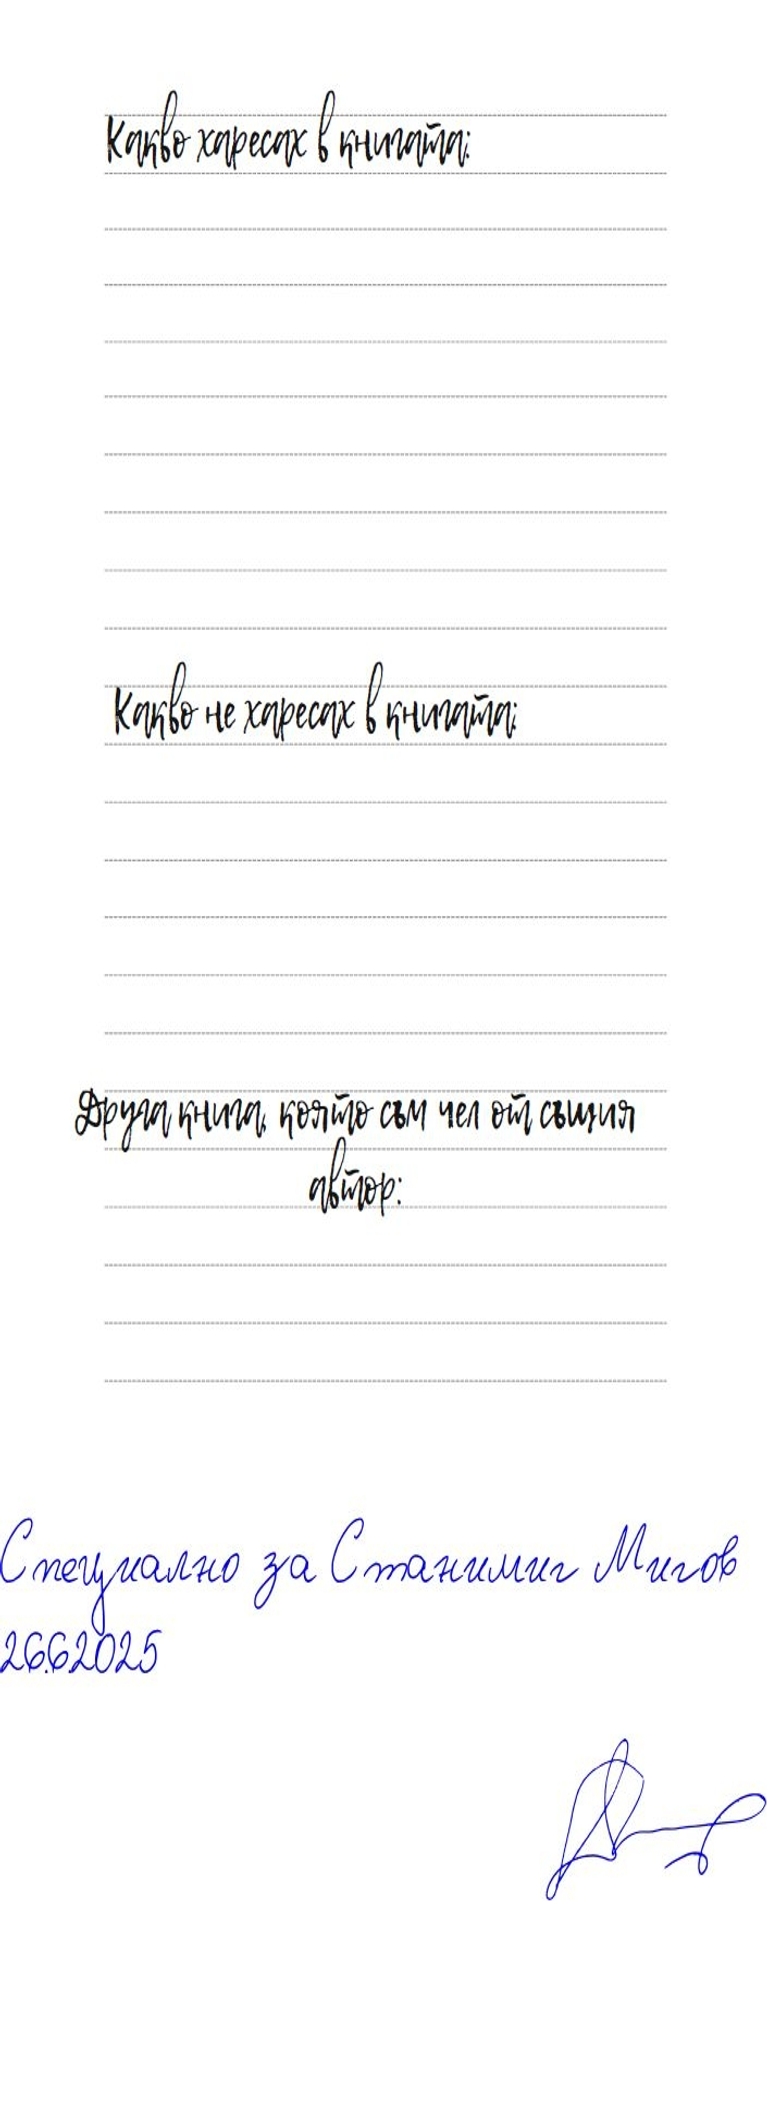 Какво харесах в книгата:
Какво не харесах в книгата:
Друга книга, която съм чел от същия
автор:
Специално за Станимиг Мигов
26.6.2025